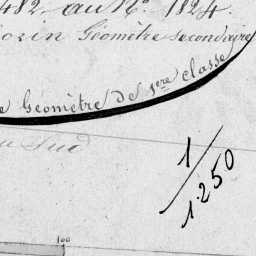 482 au N.º 1824.
Géomètre secondaire
Géomètre de 1ere classe
Sud
1/1250
100